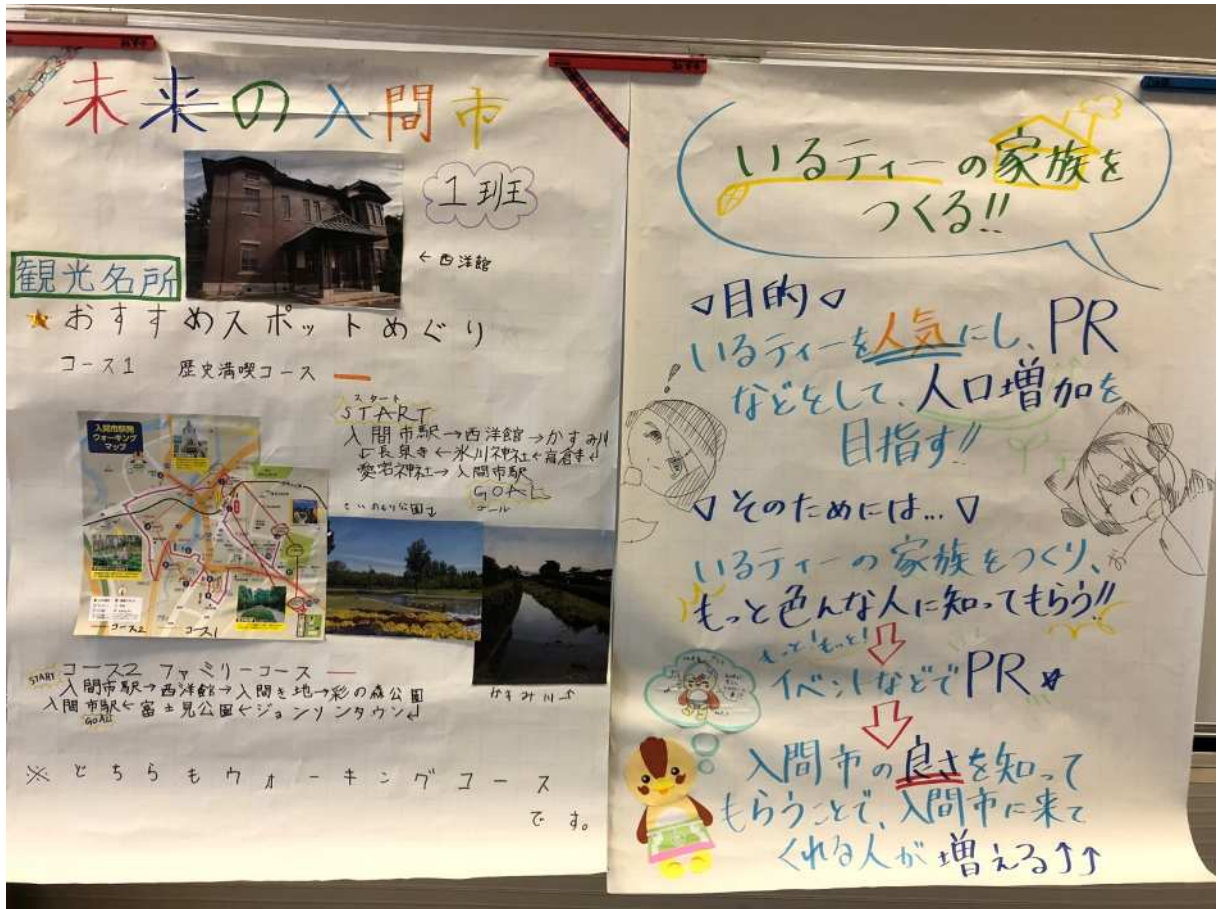 未来の入間市
1班
←西洋館
観光名所
★おすすめスポットめぐり
コース1 歴史満喫コース
スタート
START
入間市駅→西洋館→かすみ川
↓長泉寺←氷川神社←高倉寺↲
愛宕神社→入間市駅
GOAL
ゴール
入間市駅発
ウォーキング
マップ
コース2
コース1
かすみ川↑
START コース2 ファミリーコース
入間市駅→西洋館→入間き地→彩の森公園
入間市駅←富士見公園←ジョンソンタウン↲
GOAL
※どちらもウォーキングコース
です。
いるティーの家族を
つくる!!
▽目的▽
いるティーを人気にし、PR
などをして、人口増加を
目指す!!
▽そのためには...▽
いるティーの家族をつくり、
もっと色んな人に知ってもらう!!
もっと!もっと!
イベントなどでPR★
入間市の良さを知って
もらうことで、入間市に来て
くれる人が増える↑↑